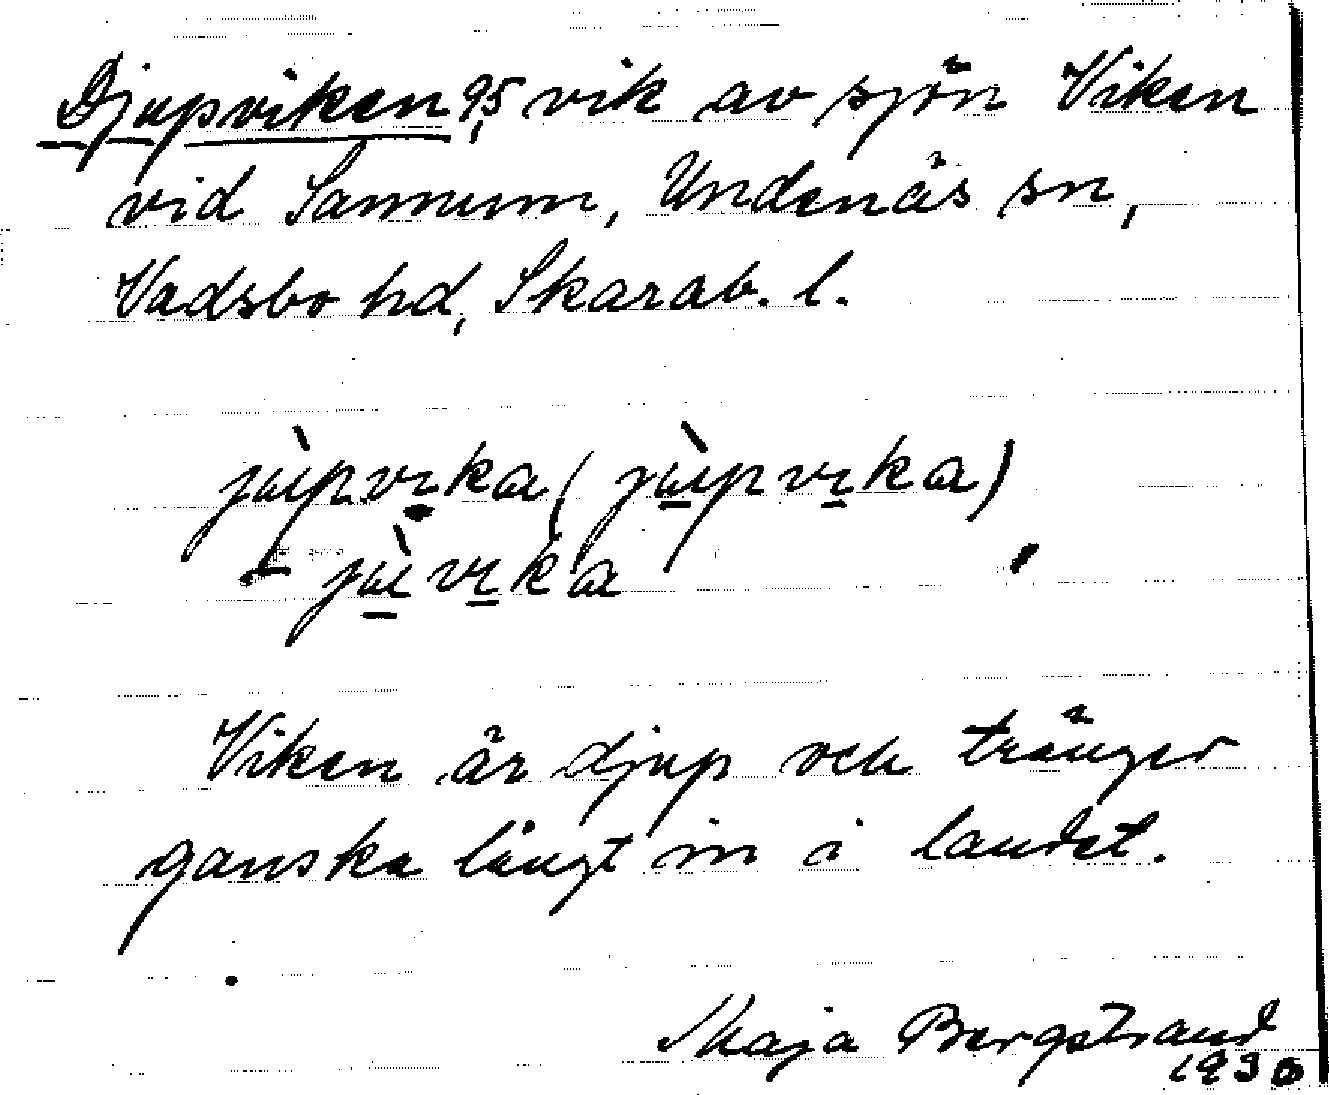 Djupviken 95, vik av sjön Viken
vid Sannum, Undenäs sn,
Vadsbo hd, Skarab. l.
jùpvɪka (jùpvɪka)
- jùvɪka
Viken är djup och tränger
ganska långt in i landet.
Maja Bergstrand
1930